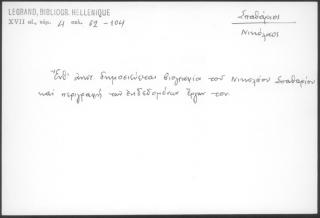 LEGRAND, BIBLIOGR. HELLENIQUE
XVII αἰ, τόμ. 4 σελ. 62 - 104
Σπαθάριος
Νικόλαος
Ἔνθ' ἀνωτ. δημοσιεύεται βιογραφία τοῦ Νικολάου Σπαθαρίου
καὶ περιγραφὴ τῶν ἐκδεδομένων ἔργων του.